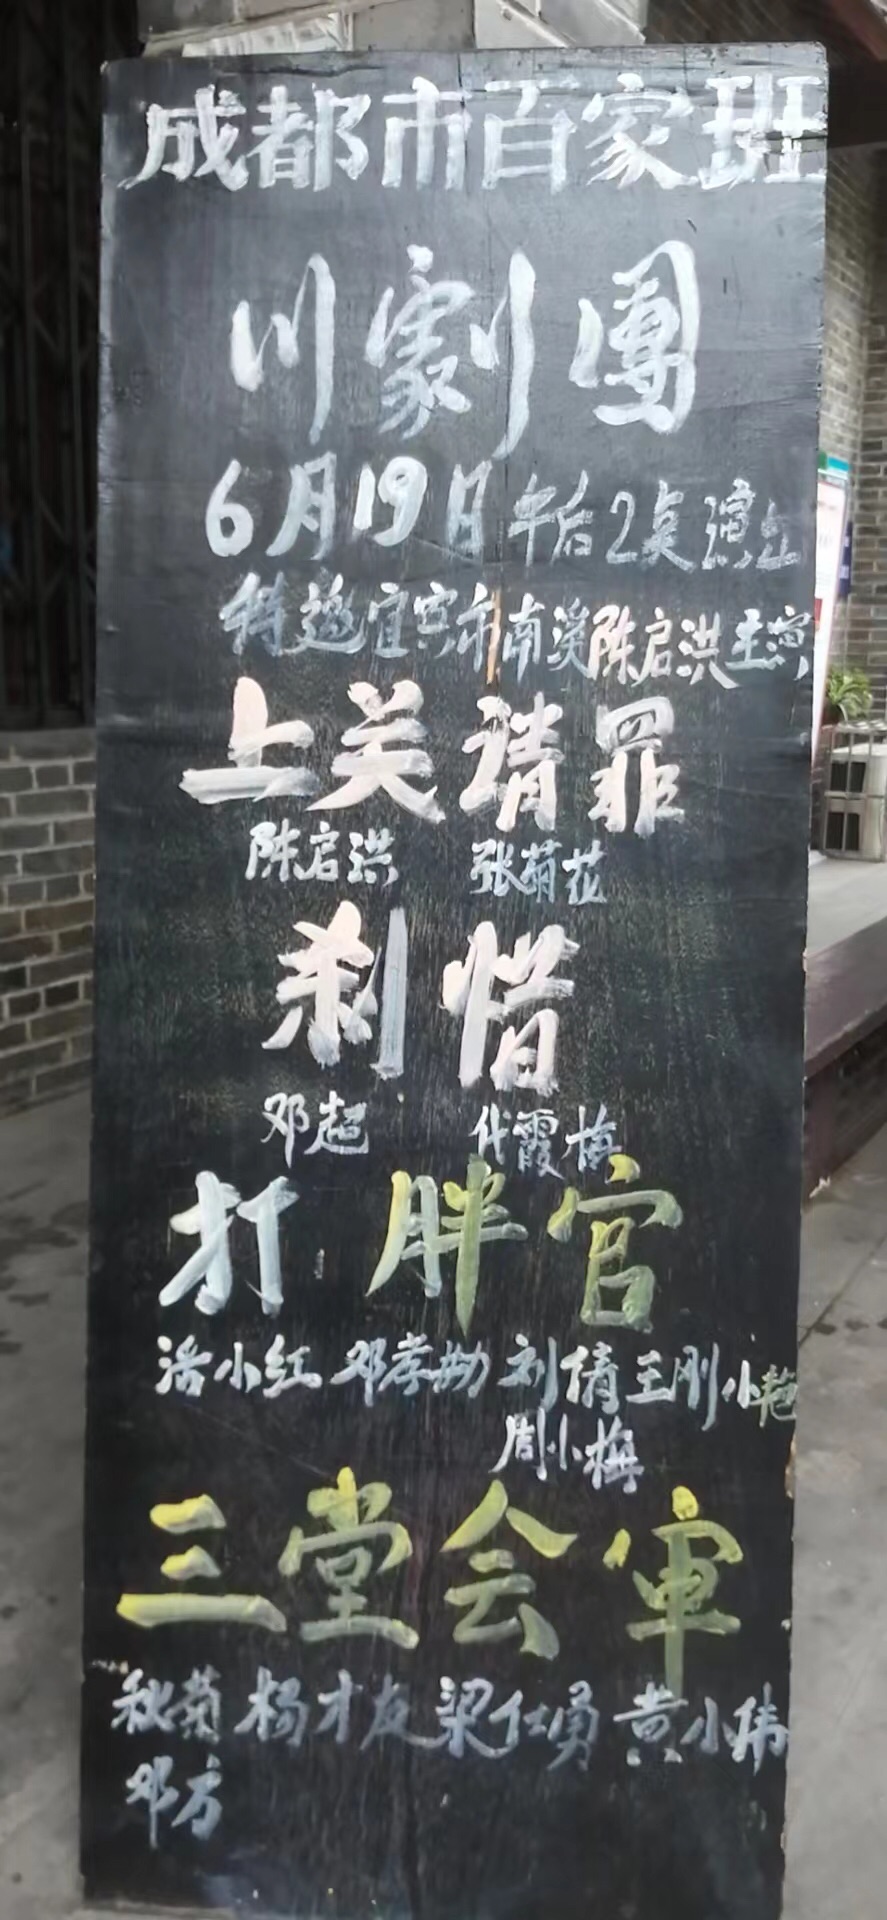 成都市百家班
川劇團
6月19日午后2点演出
特邀宜宾市南溪陈启洪主演
上关请罪
陈启洪 张菊花
刹惜
邓超 代霞梅
打胖官
潘小红 邓孝勋 刘倩 王刚 小艳
周小梅
三堂会审
秋菊 杨才友 梁仕勇 黄小玮
邓方